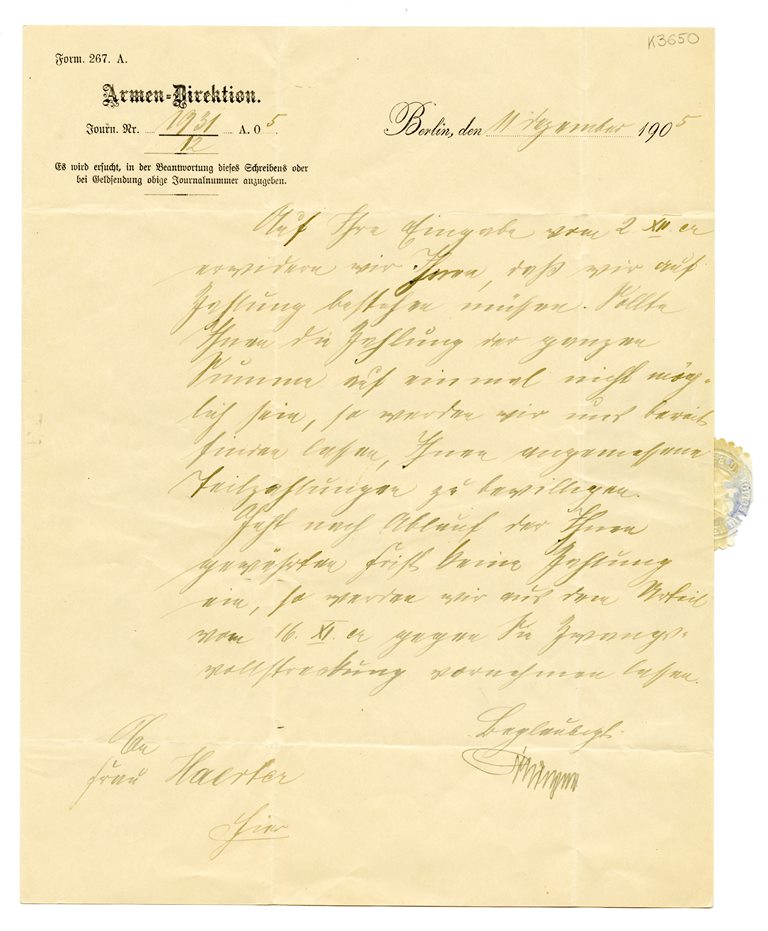 K3650
Form. 267. A.
Armen-Direktion.
Journ. Nr. 1931/12 A. 05.
Berlin, den 11 Dezember 1905
Es wird ersucht, in der Beantwortung dieses Schreibens oder
bei Geldsendung obige Journalnummer anzugeben.
Auf Ihre Eingabe vom 2. XII. cr
erwidern wir Ihnen, daß wir auf
Zahlung bestehen müssen. Sollte
Ihnen die Zahlung der ganzen
Summe auf einmal nicht mög-
lich sein, so werden wir uns bereit
finden lassen, Ihnen angemessene
Teilzahlungen zu bewilligen.
Geht nach Ablauf der Ihnen
gewährten Frist keine Zahlung
ein, so werden wir aus dem Urteil
vom 16. XI. cr gegen Sie Zwangs-
vollstreckung vornehmen lassen.
Beglaubigt.
An
Frau Haerter
Hier